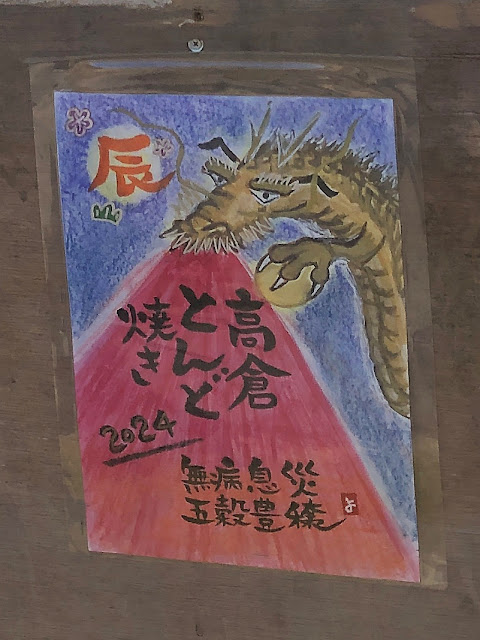 辰
高倉
とんど
焼き
2024
無病息災
五穀豊穣
よ